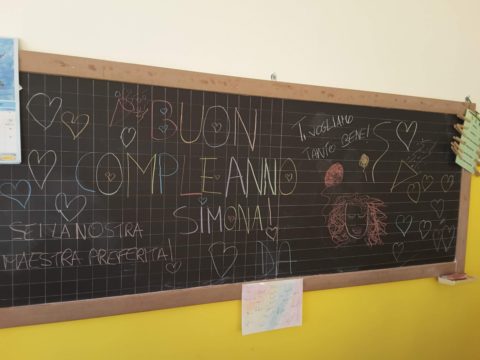 BUON
COMPLEANNO
SIMONA!
DA
TI VOGLIAMO
TANTO BENE!
SEI LA NOSTRA
MAESTRA PREFERITA!